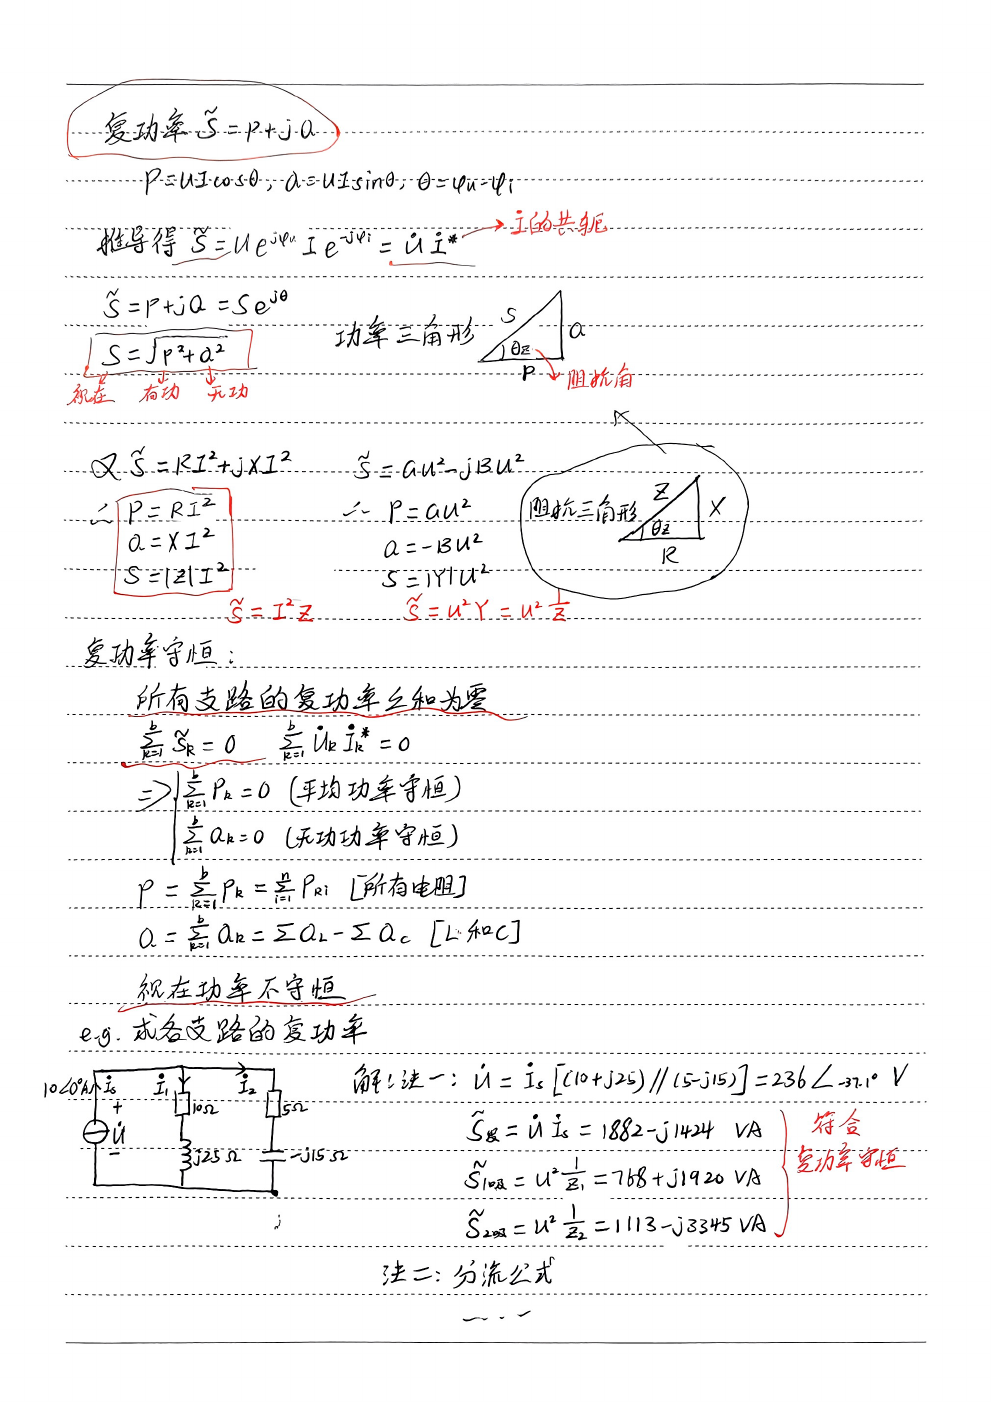 复功率 S̃ = P+jQ
P=UIcosθ, Q=UIsinθ, θ=φu-φi
推导得 S̃ = Ue^jφu Ie^-jφi = U̇ İ* → İ的共轭
S̃ = P+jQ = Se^jθ
S = √(P²+Q²)
视在 有功 无功
功率三角形 S Q θz P 阻抗角
又 S̃ = RI²+jXI²
∴ P = RI²
Q = XI²
S = |Z|I²
S̃ = I²Z
S̃ = GU²-jBU²
∴ P = GU²
Q = -BU²
S = |Y|U²
S̃ = U²Y = U² 1/Z
阻抗三角形 Z X θz R
复功率守恒:
所有支路的复功率之和为零
∑(k=1→b) S̃k = 0 ∑(k=1→b) U̇k İk* = 0
⇒ ∑(k=1→b) Pk = 0 (平均功率守恒)
∑(k=1→b) Qk = 0 (无功功率守恒)
P = ∑(k=1→b) Pk = ∑(i=1→n) PRi [所有电阻]
Q = ∑(k=1→b) Qk = ∑QL - ∑Qc [L和C]
视在功率不守恒
e.g. 求各支路的复功率
10∠0°A İs İ1 İ2
+ U̇ -
10Ω 5Ω
j25Ω -j15Ω
解: 法一: U̇ = İs [(10+j25)//(5-j15)] = 236∠-37.1° V
S̃发 = U̇ İs = 1882-j1424 VA
S̃1吸 = U² 1/Z1 = 768+j1920 VA
S̃2吸 = U² 1/Z2 = 1113-j3345 VA
符合
复功率守恒
法二: 分流公式